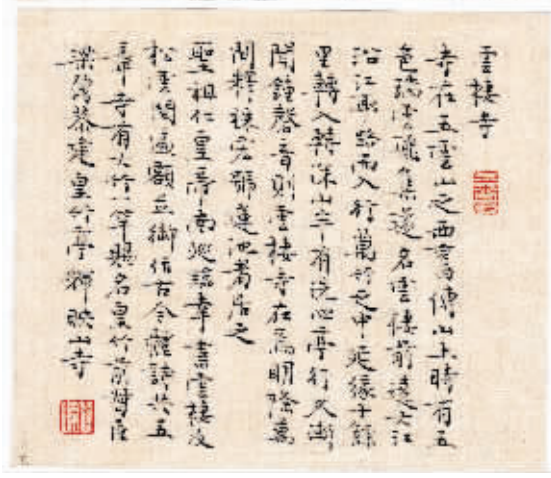 雲棲寺
寺在五雲山之西舊傳山上時有五
色瑞雲飛集遂名雲棲前遶大江
沿江取路而入行萬竹之中延緣十餘
里轉入轉深山半有洗心亭行又漸
聞鐘磬音則雲棲寺在焉明隆萬
間釋袾宏號蓮池者居之
聖祖仁皇帝南巡臨幸書雲棲及
松濩閣匾額並御仿古今雜詩共五
章寺有大竹一竿賜名皇竹前督臣
梁鼐恭建皇竹亭輝映山寺